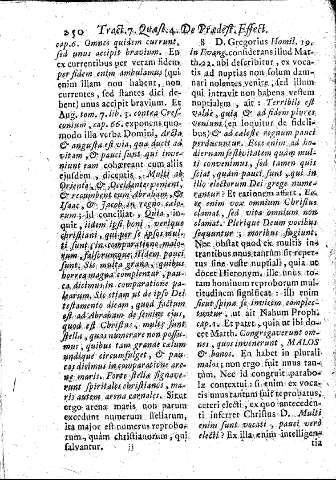 250 Tract. 7. Quæst. 4. De Prædest. Effect.
cap. 6. Omnes quidem currunt,
sed unus accipit bravium. En
ex currentibus per veram fidem,
per fidem enim ambulamus (qui
enim illam non habent, non
currentes, sed stantes dici de-
bent) unus accipit bravium. Et
Aug. tom. 7. lib. 3. contra Cres-
conium, cap. 66. exponens quo-
modo illa verba Domini, Arcta
& angusta est via, quæ ducit ad
vitam, & pauci sunt qui inve-
niunt eam cohæreant cum aliis
ejusdem, dicentis, Multi ab
Oriente, & Occidente venient,
& recumbent cum Abraham, &
Isaac, & Jacob, in regno cælo-
rum; Id conciliat, Quia, in-
quit, iidem ipsi boni, verique
christiani, qui per se ipsos mul-
ti sunt, in comparatione malo-
rum, falsorumque, iidem pauci
sunt. Sic multa grana, quibus
horrea magna complentur, pau-
ca, dicimus in comparatione pa-
learum. Sic etiam ut de ipso Dei
testamento dicam, quod factum
est ad Abraham de semine ejus,
quod est Christus, multæ sunt
stellæ, quas numerare non possu-
mus, quibus tam grande cælum
undique circumfulget, & pau-
cas dicimus in comparatione are-
næ maris. Forte stella signave-
runt spiritales christianos, ma-
ris autem arena carnales. Sicut
ergo arenæ maris non parum
excedunt numerum stellarum,
ita major est numerus reprobo-
rum, quàm christianorum, qui
salvantur.
8 D. Gregorius Homil. 19.
in Evang. considerans illud Mat-
th. 22. ubi describitur, ex voca-
tis ad nuptias non solum dam-
nari nolentes venire, sed illum
qui intravit non habens vestem
nuptialem, ait: Terribile est
valde, quia & ad fidem plures
veniunt (en loquitur de fideli-
bus) & ad cæleste regnum pauci
perducuntur. Ecce enim ad ho-
diernam festivitatem quàm mul-
ti convenimus, sed tamen quis
sciat, quàm pauci sunt, qui in
illo electorum Dei grege nume-
rantur? Et rationem affert, Ec-
ce enim vox omnium Christus
clamat, sed vita omnium non
clamat. Plerique Deum vocibus
sequuntur: moribus fugiunt.
Nec obstat quod ex multis in-
trantibus unus tantùm sit reper-
tus sine veste nuptiali, quia ut
docet Hieronym. ille unus to-
tam hominum reproborum mul-
titudinem significat: illi enim
sicut spinæ se invicem complec-
tuntur, ut ait Nahum Propheta
cap. 1. Et patet, quia ut ibi do-
cet Matth. Congregaverunt om-
nes, quos invenerunt, MALOS
& bonos. En habet in plurali
malos; non ergo fuit unus tan-
tùm. Nec id congruit parabo-
læ contextui: si enim ex voca-
tis unus tantùm fuit reprobatus,
cæteri electi, ex quo anteceden-
ti infertur Christus D. Multi
enim sunt vocati, pauci verò
electi? Ex illa enim intelligen-
tia